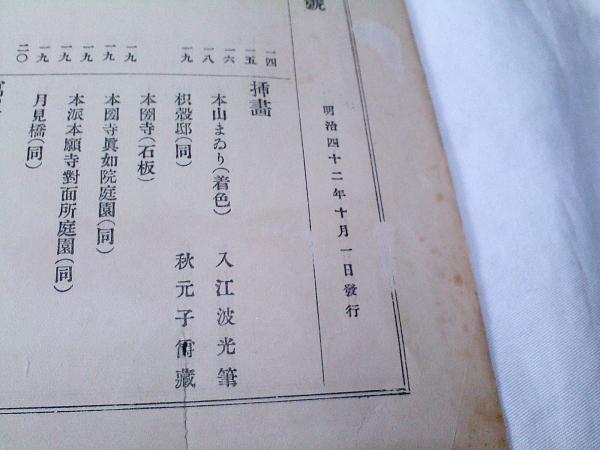 號
明治四十二年十月一日發行
挿畫
本山まゐり(着色) 入江波光筆
枳殼邸(同) 秋元子爵藏
本圀寺(石板)
本圀寺眞如院庭園(同)
本派本願寺對面所庭園(同)
月見橋(同)
一四
一五
一六
一八
一九
一九
一九
一九
一九
一九
二〇